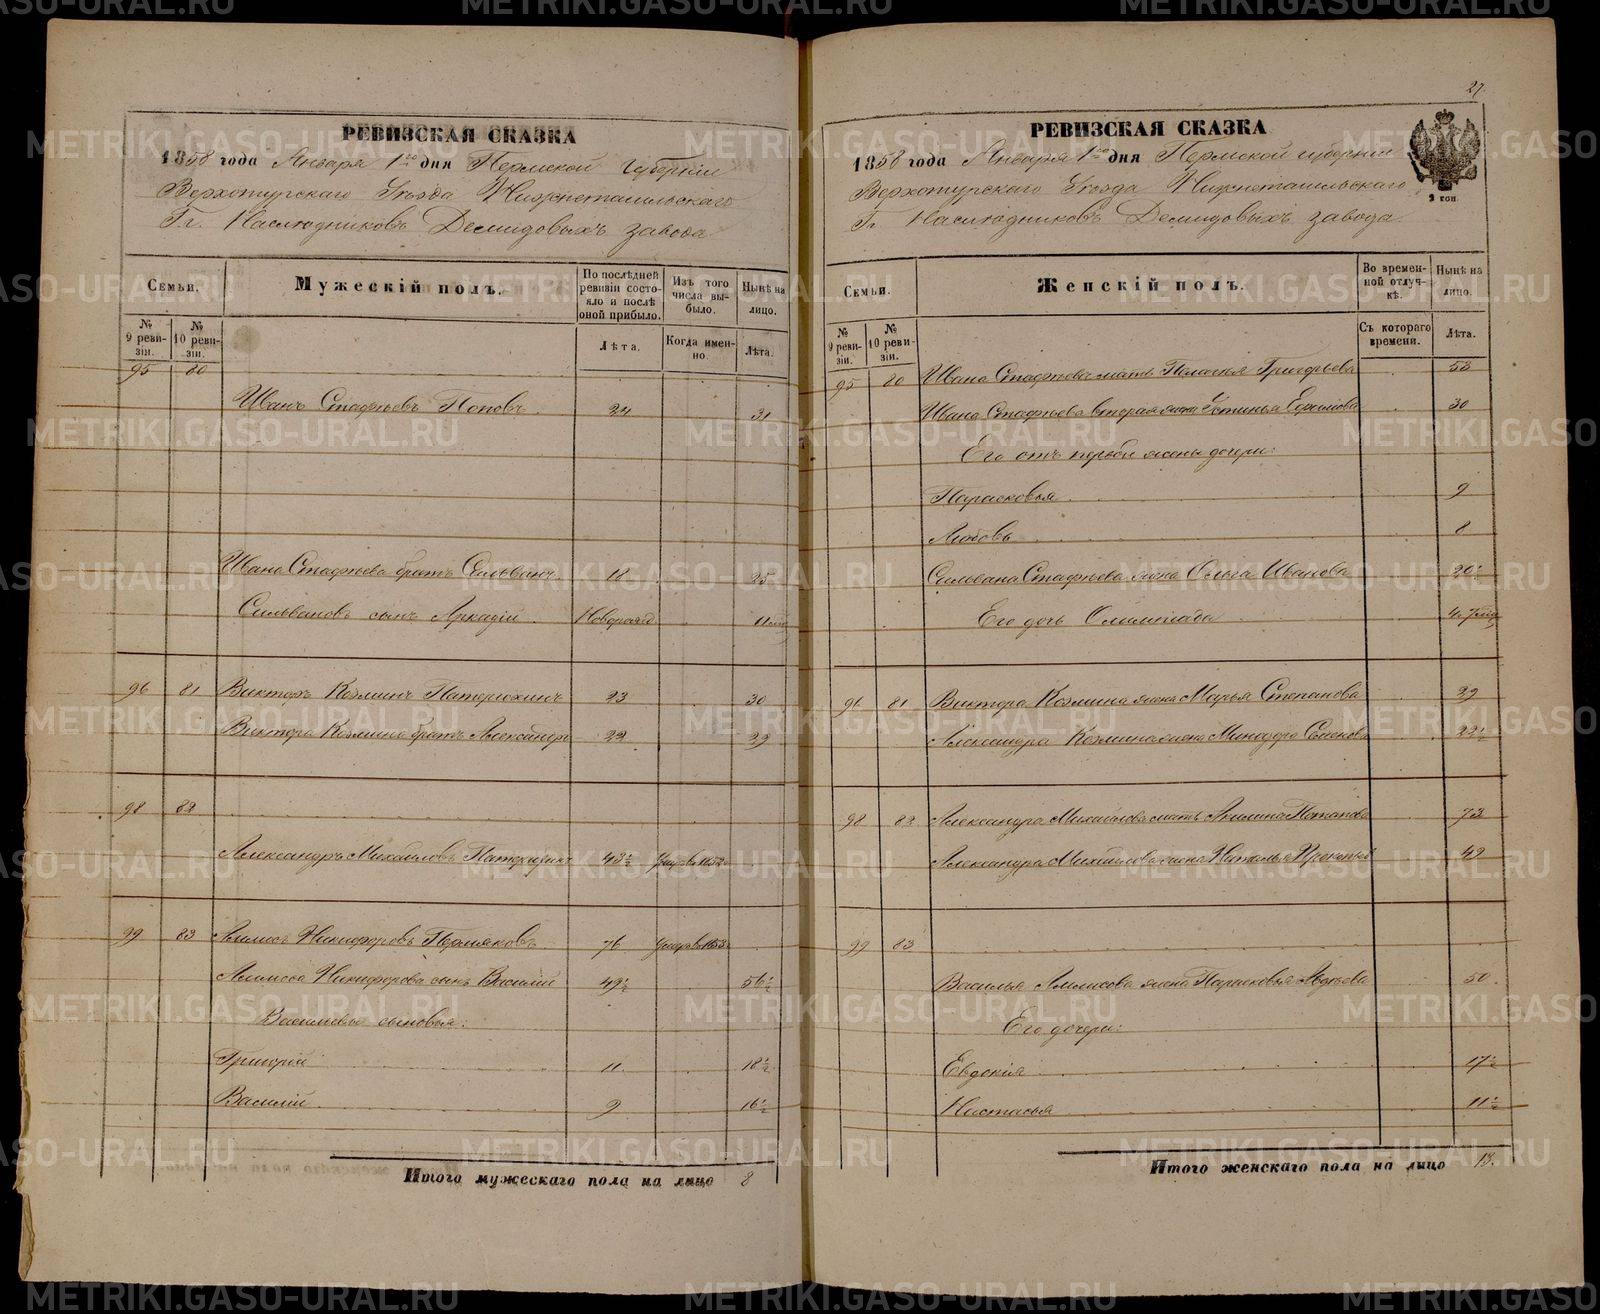 27.
РЕВИЗСКАЯ СКАЗКА
1858 года Января 1го дня Пермской Губерніи
Верхотурскаго Уѣзда Нижнетагильскаго
Гг. Наслѣдниковъ Демидовыхъ завода
Семьи.
Мужескій полъ.
По послѣдней ревизіи состояло и послѣ оной прибыло.
Изъ того числа выбыло.
Нынѣ на лицо.
№ 9 ревизіи.
№ 10 ревизіи.
Лѣта.
Когда именно.
Лѣта.
95 80
Иванъ Стафѣевъ Поповъ 24 31
Ивана Стафѣева братъ Сильванъ 18 25
Сильвановъ сынъ Аркадій Новорожд 11
96 81 Викторъ Козминъ Патерюхинъ 23 30
Виктора Козмина братъ Александръ 22 29
98 82
Александръ Михайловъ 43½
99 83 Никифоровъ Пермяковъ 76
Никифорова сынъ Василій 49½ 56½
Васильевы сыновья:
Григорій 11 18½
Василій 9 16½
Итого мужескаго пола на лицо 8
РЕВИЗСКАЯ СКАЗКА
1858 года Января 1го дня Пермской губерніи
Верхотурскаго Уѣзда Нижнетагильскаго
Гг. Наслѣдниковъ Демидовыхъ завода
Семьи.
Женскій полъ.
Во временной отлучкѣ.
Нынѣ на лицо.
№ 9 ревизіи.
№ 10 ревизіи.
Съ котораго времени.
Лѣта.
95 80 Ивана Стафѣева мать Палагея Григорьева 53
Ивана Стафѣева вторая жена Устинья Ефимова 30
Его отъ первой жены дочери:
Парасковья 9
Любовь 8
Сильвана Стафѣева жена Ольга Иванова 20½
Его дочь Олимпіада
96 81 Виктора Козмина жена Марья Степанова 29
Александра Козмина жена Минодора 22½
98 82 Александра Михайлова мать Акилина Потапова 73
Александра Михайлова жена Наталья 49
99 83
Василья жена Парасковья Авдѣева 50
Его дочери:
Евдокія 17½
Настасья 11½
Итого женскаго пола на лицо 13.
METRIKI.GASO-URAL.RU